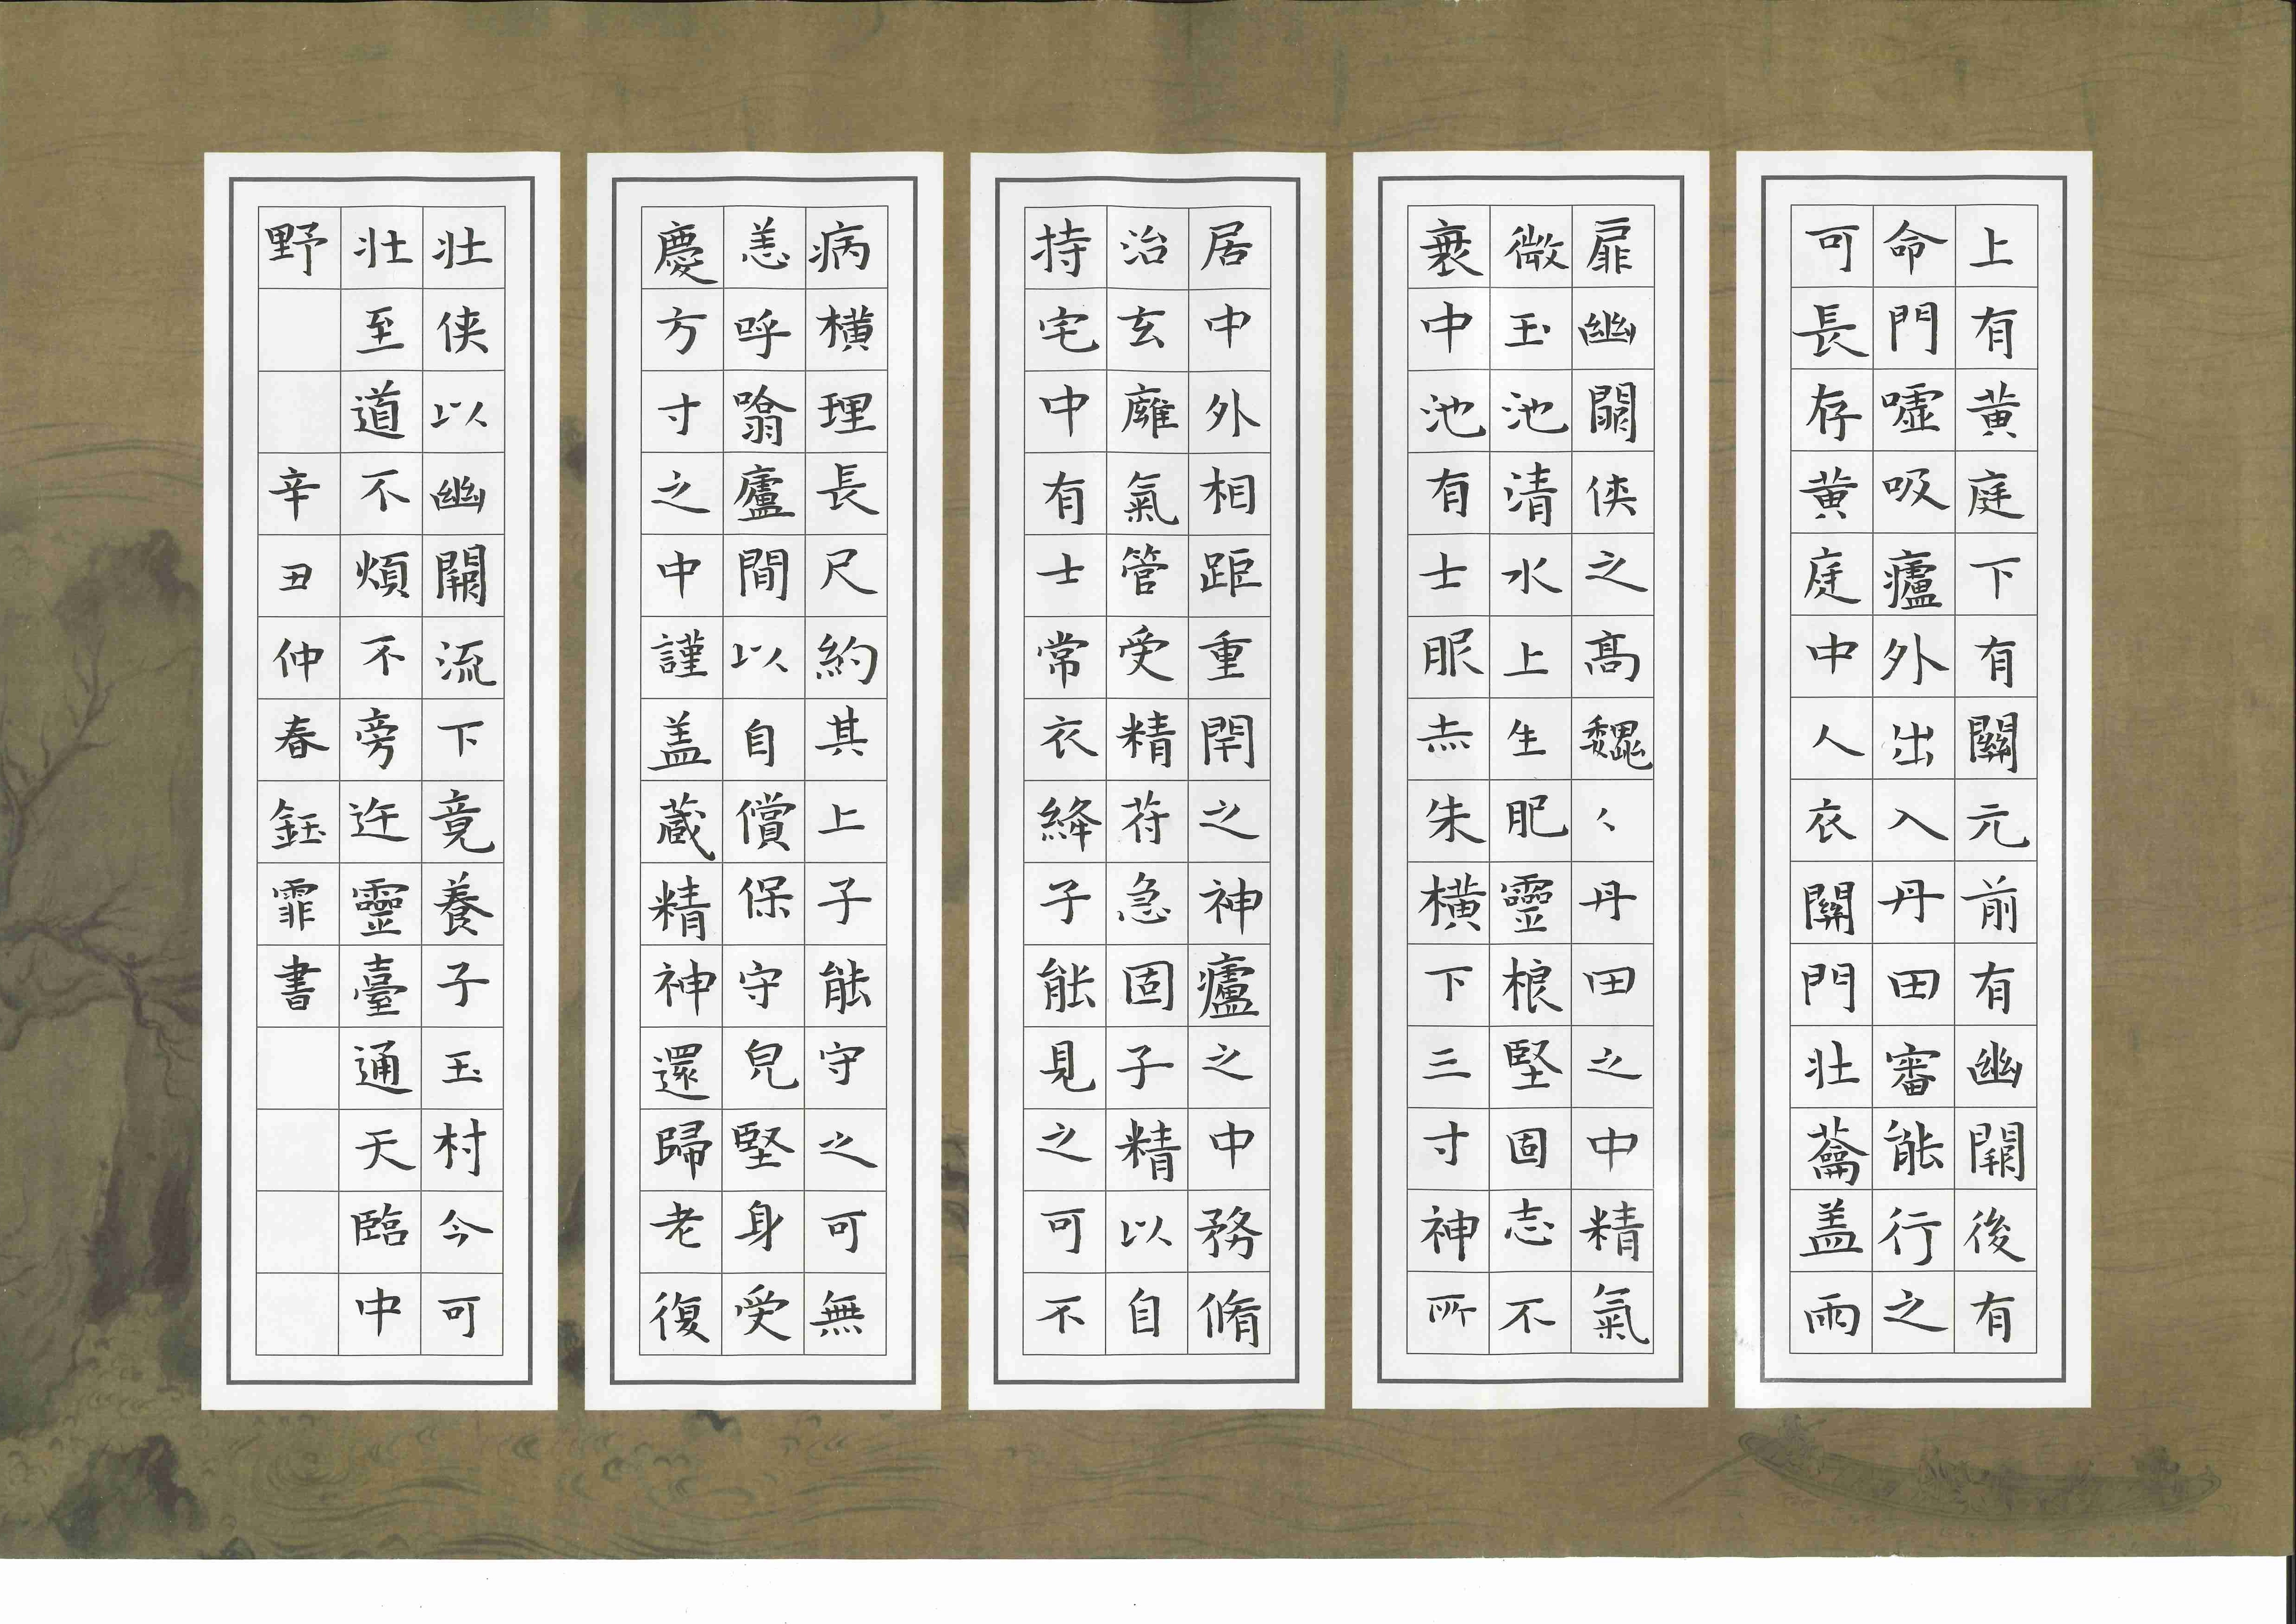 上有黄庭下有關元前有幽闕後有
命門噓吸廬外出入丹田審能行之
可長存黄庭中人衣關門壯蘥盖兩
扉幽關俠之高魏々丹田之中精氣
微玉池清水上生肥靈根堅固志不
衰中池有士服赤朱横下三寸神所
居中外相距重閇之神廬之中務脩
治玄廱氣管受精符急固子精以自
持宅中有士常衣絳子能見之可不
病横理長尺約其上子能守之可無
恙呼噏廬間以自償保守皃堅身受
慶方寸之中謹盖藏精神還歸老復
壯俠以幽闕流下竟養子玉樹令可
壯至道不煩不旁迕靈臺通天臨中
野辛丑仲春鈺霏書